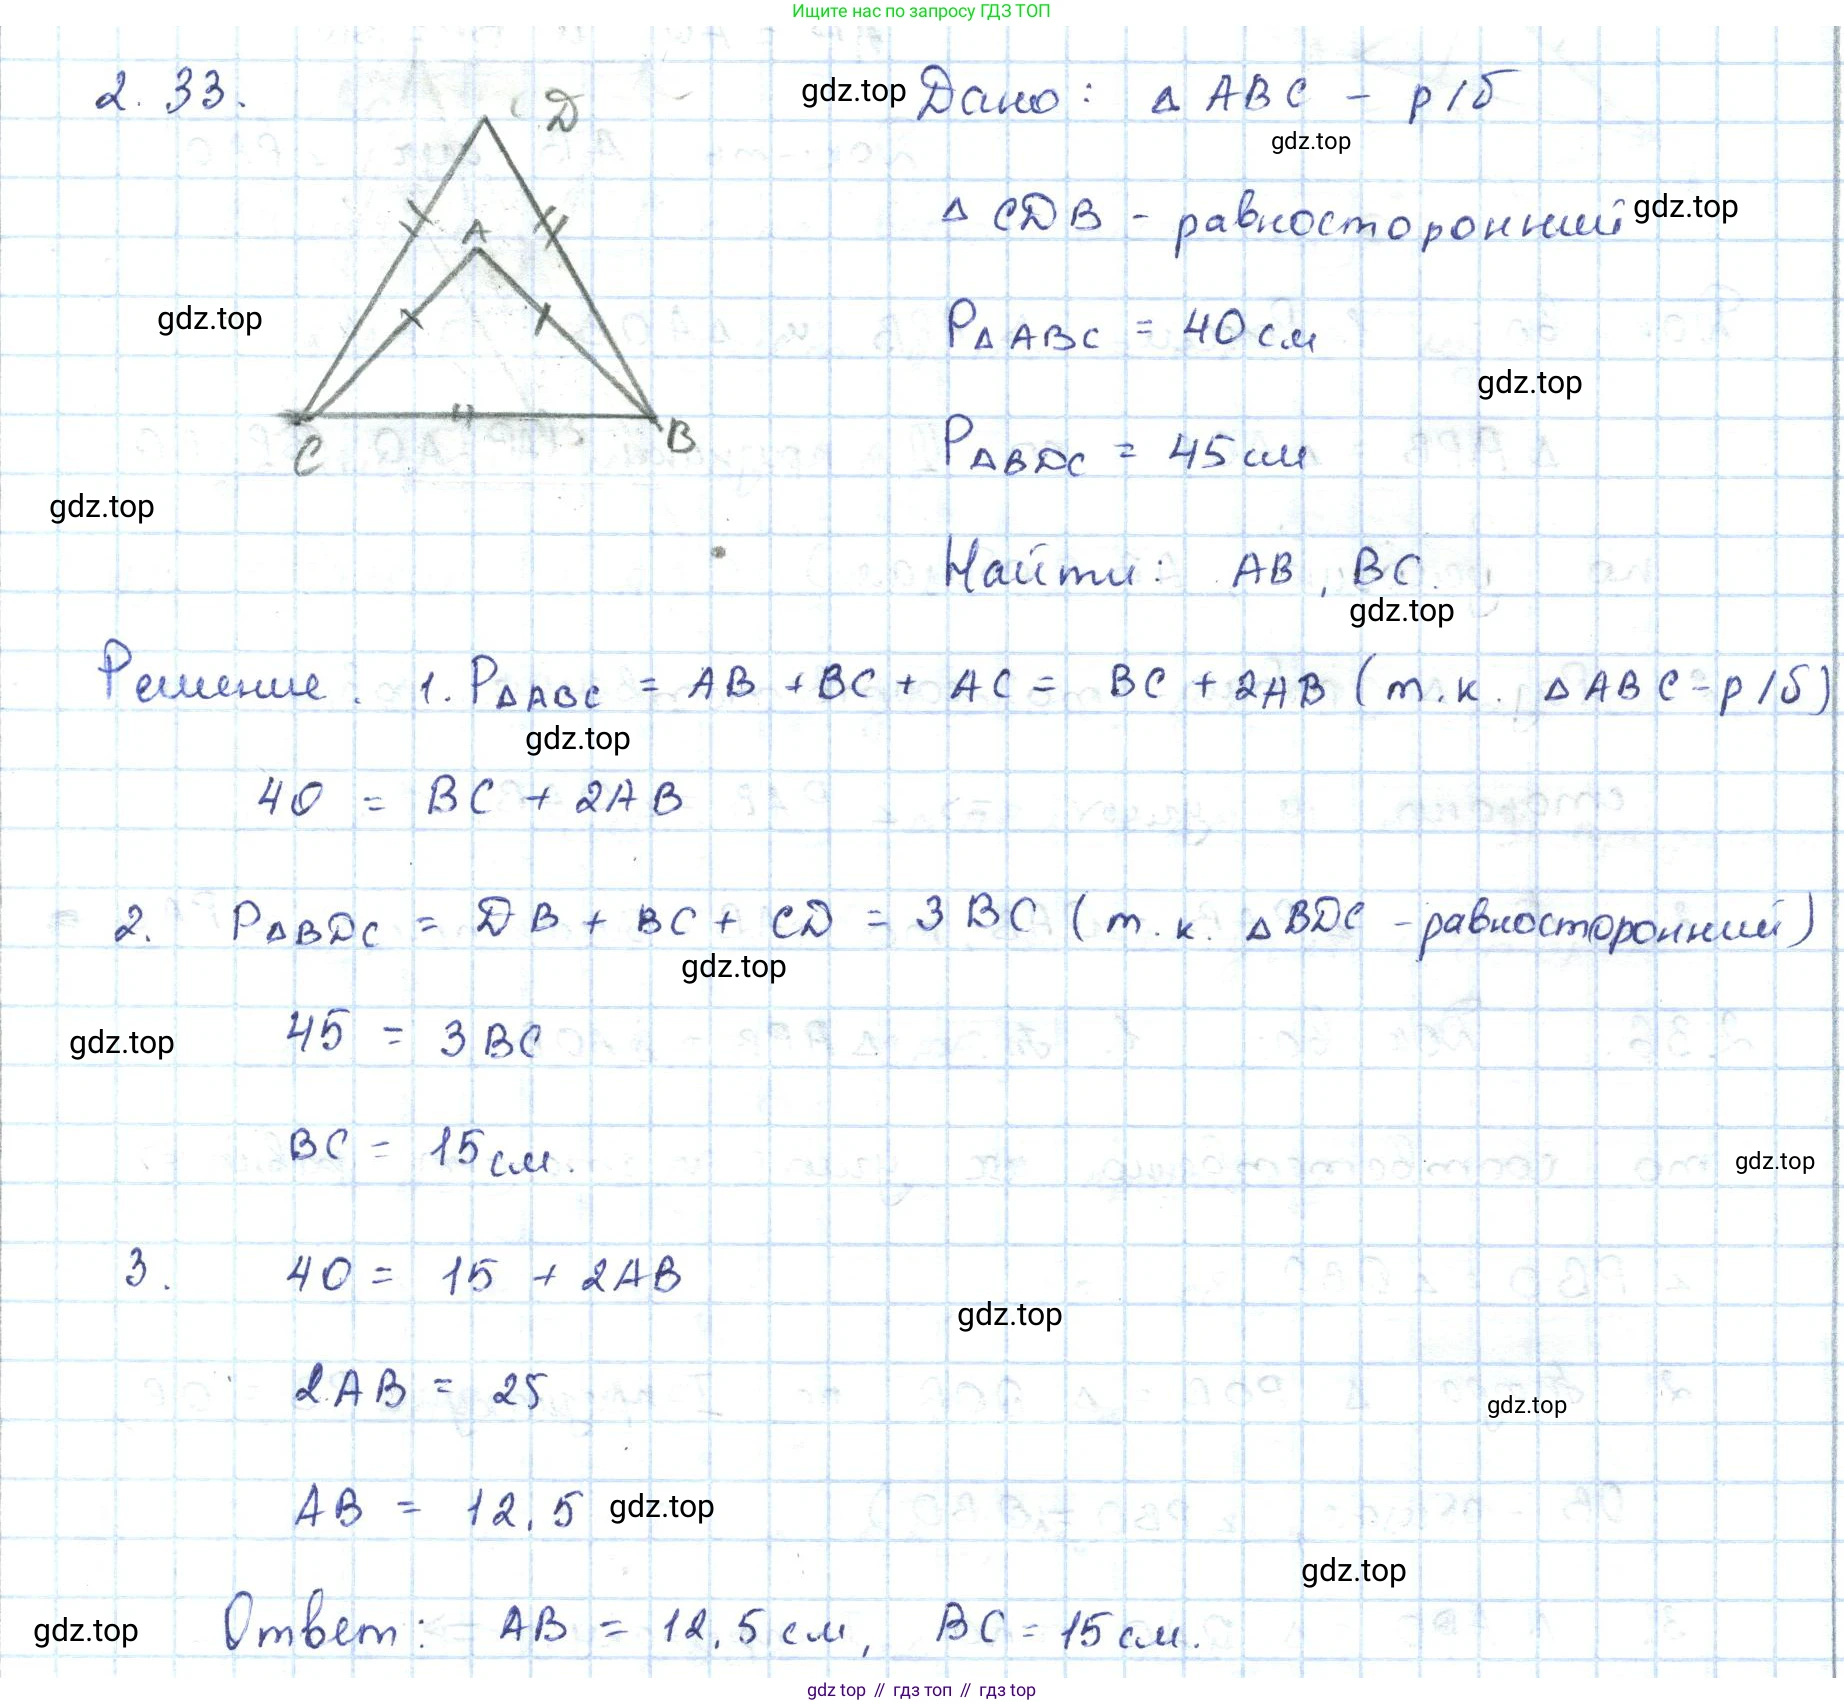 Ищите нас по запросу ГДЗ ТОП
2.33.
D
A
C
B
gdz.top
Дано: Δ ABC - р/б
gdz.top
Δ CDB - равносторонний
gdz.top
gdz.top
PΔABC = 40см
gdz.top
PΔBDC = 45см
gdz.top
Найти: AB, BC.
gdz.top
Решение. 1. PΔABC = AB + BC + AC = BC + 2AB (т.к. ΔABC - р/б)
gdz.top
40 = BC + 2AB
2. PΔBDC = DB + BC + CD = 3BC (т.к. ΔBDC - равносторонний)
gdz.top
gdz.top
45 = 3BC
BC = 15см.
gdz.top
3. 40 = 15 + 2AB
gdz.top
2AB = 25
gdz.top
AB = 12,5
gdz.top
gdz.top
gdz.top
Ответ: AB = 12,5см, BC = 15см.
gdz top // гдз топ // гдз top